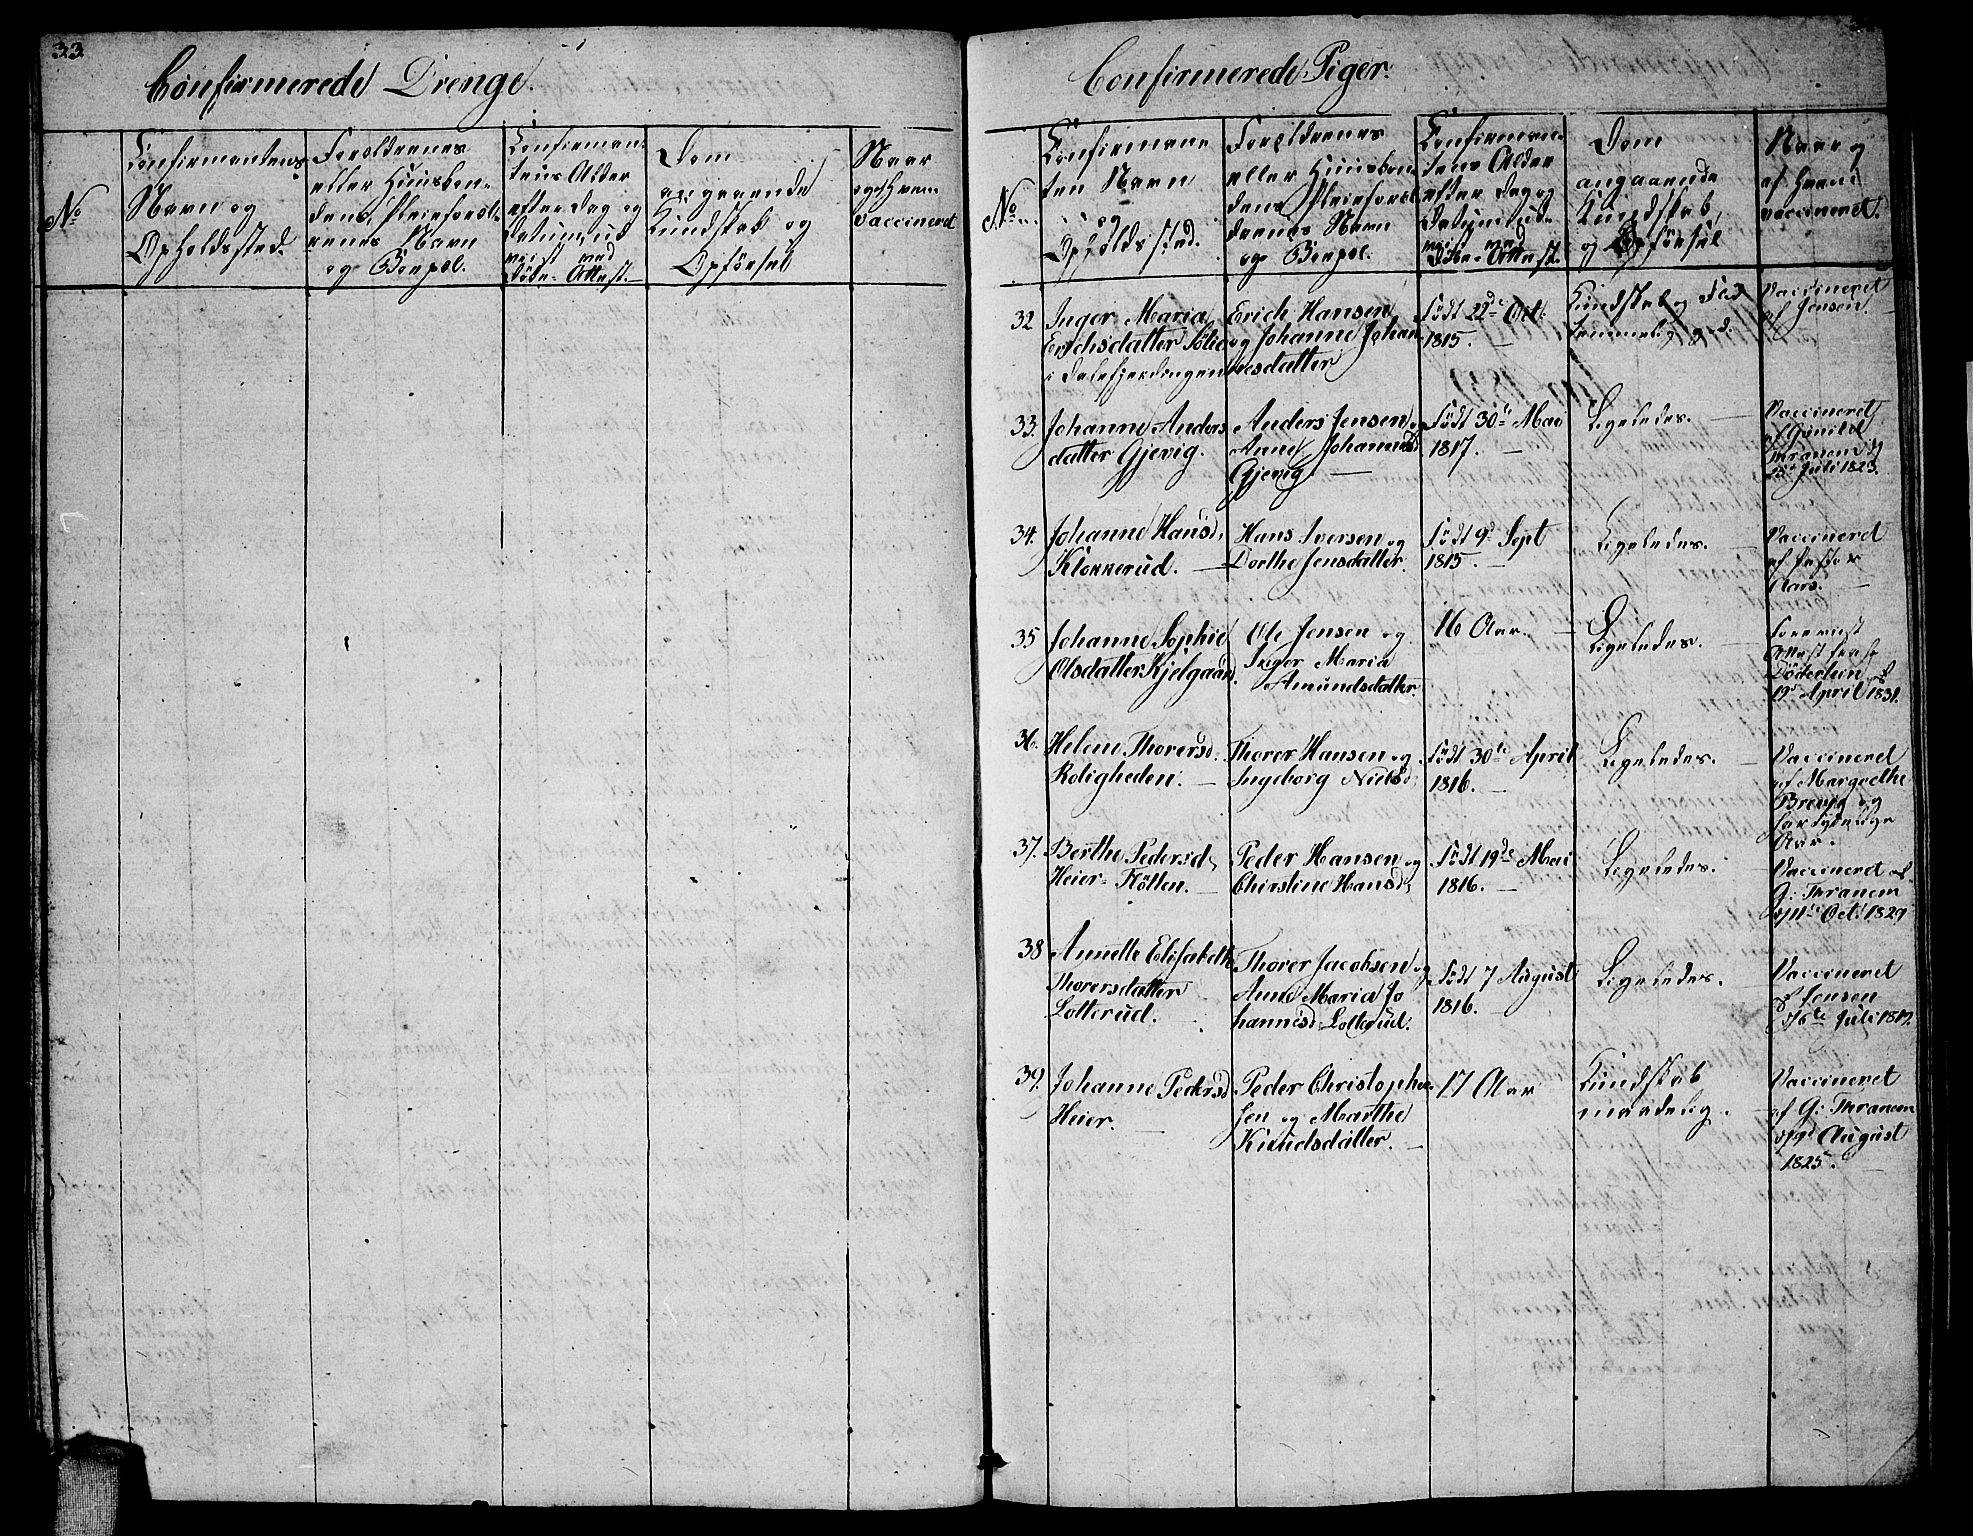 33
Confirmerede Drenge.
No
Confirmantens
Navn og
Opholdssted.
Foreldrenes
eller Huusbon-
dens, Pleieforel-
renes Navn
og Boepel.
Confirman-
tens Alder
efter Dag og
Datum, ud-
viist med
Döbe-Attest.
Dom
angaaende
Kundskab og
Opførsel
Naar
og af Hvem
vaccineret
Confirmerede Piger.
No
Confirmane
ten Navn
og
Opholdssted.
Forældrenes
eller Huusbon-
dens Pleieforel-
drenes Navn
og Boepel.
Confirman-
tens Alder
efter Dag og
Datum ud-
viist med
Döbe-Attest.
Dom
angaaende
Kundskab,
og Opførsel
Naar og
af hvem
vaccineret.
32 Inger Maria
Erichsdatter Sölie
i Dalefjerdingen
Erich Hansen
og Johanne Johan-
nesdatter
Födt 22de Oct:
1815.
Kundskab og Flid
temmelig god.
Vaccineret
af Jensen.
33. Johanne Anders
datter Gjevig.
Anders Jensen og
Anne Johannesd
Gjevig
Födt 30te Mai
1817.
Ligeledes.
Vaccineret
af Gunild
Thranem
18de Juli 1823.
34. Johanne Hansd.
Klonnerud.
Hans Iversen og
Dorthe Jensdatter.
Födt 9d Sept
1815.
Ligeledes.
Vaccineret
af Pastor
Aars.
35 Johanne Sophie
Olsdatter Kjelgaard.
Ole Jensen og
Inger Maria
Amundsdatter.
16 Aar.
Ligeledes.
Foreviist
Attest fra
Döderlein
19d April 1831.
36. Helene Thorersd.
Roligheden.
Thorer Hansen og
Ingeborg Nielsd.
Födt 30te April
1816.
Ligeledes.
Vaccineret
af Margrethe
Brevig og
har sydenlige
Ar.
37. Berthe Pedersd.
Heier-Flötten.
Peder Hansen og
Christine Hansd.
Födt 19de Mai
1816.
Ligeledes.
Vaccineret af
G: Thranem
11te Oct. 1829
38 Annette Elisabeth
Thorersdatter
Lotterud.
Thorer Jacobsen og
Anne Maria Jo
hannesd. Lotterud.
Födt 7 August
1816.
Ligeledes.
Vaccineret
af Jensen
16te Juli 1817.
39. Johanne Pedersd
Heier.
Peder Christopher
sen og Marthe
Knudsdatter.
17 Aar
Kundskab
maadelig.
Vaccineret
af G: Thranem
9d August
1825.